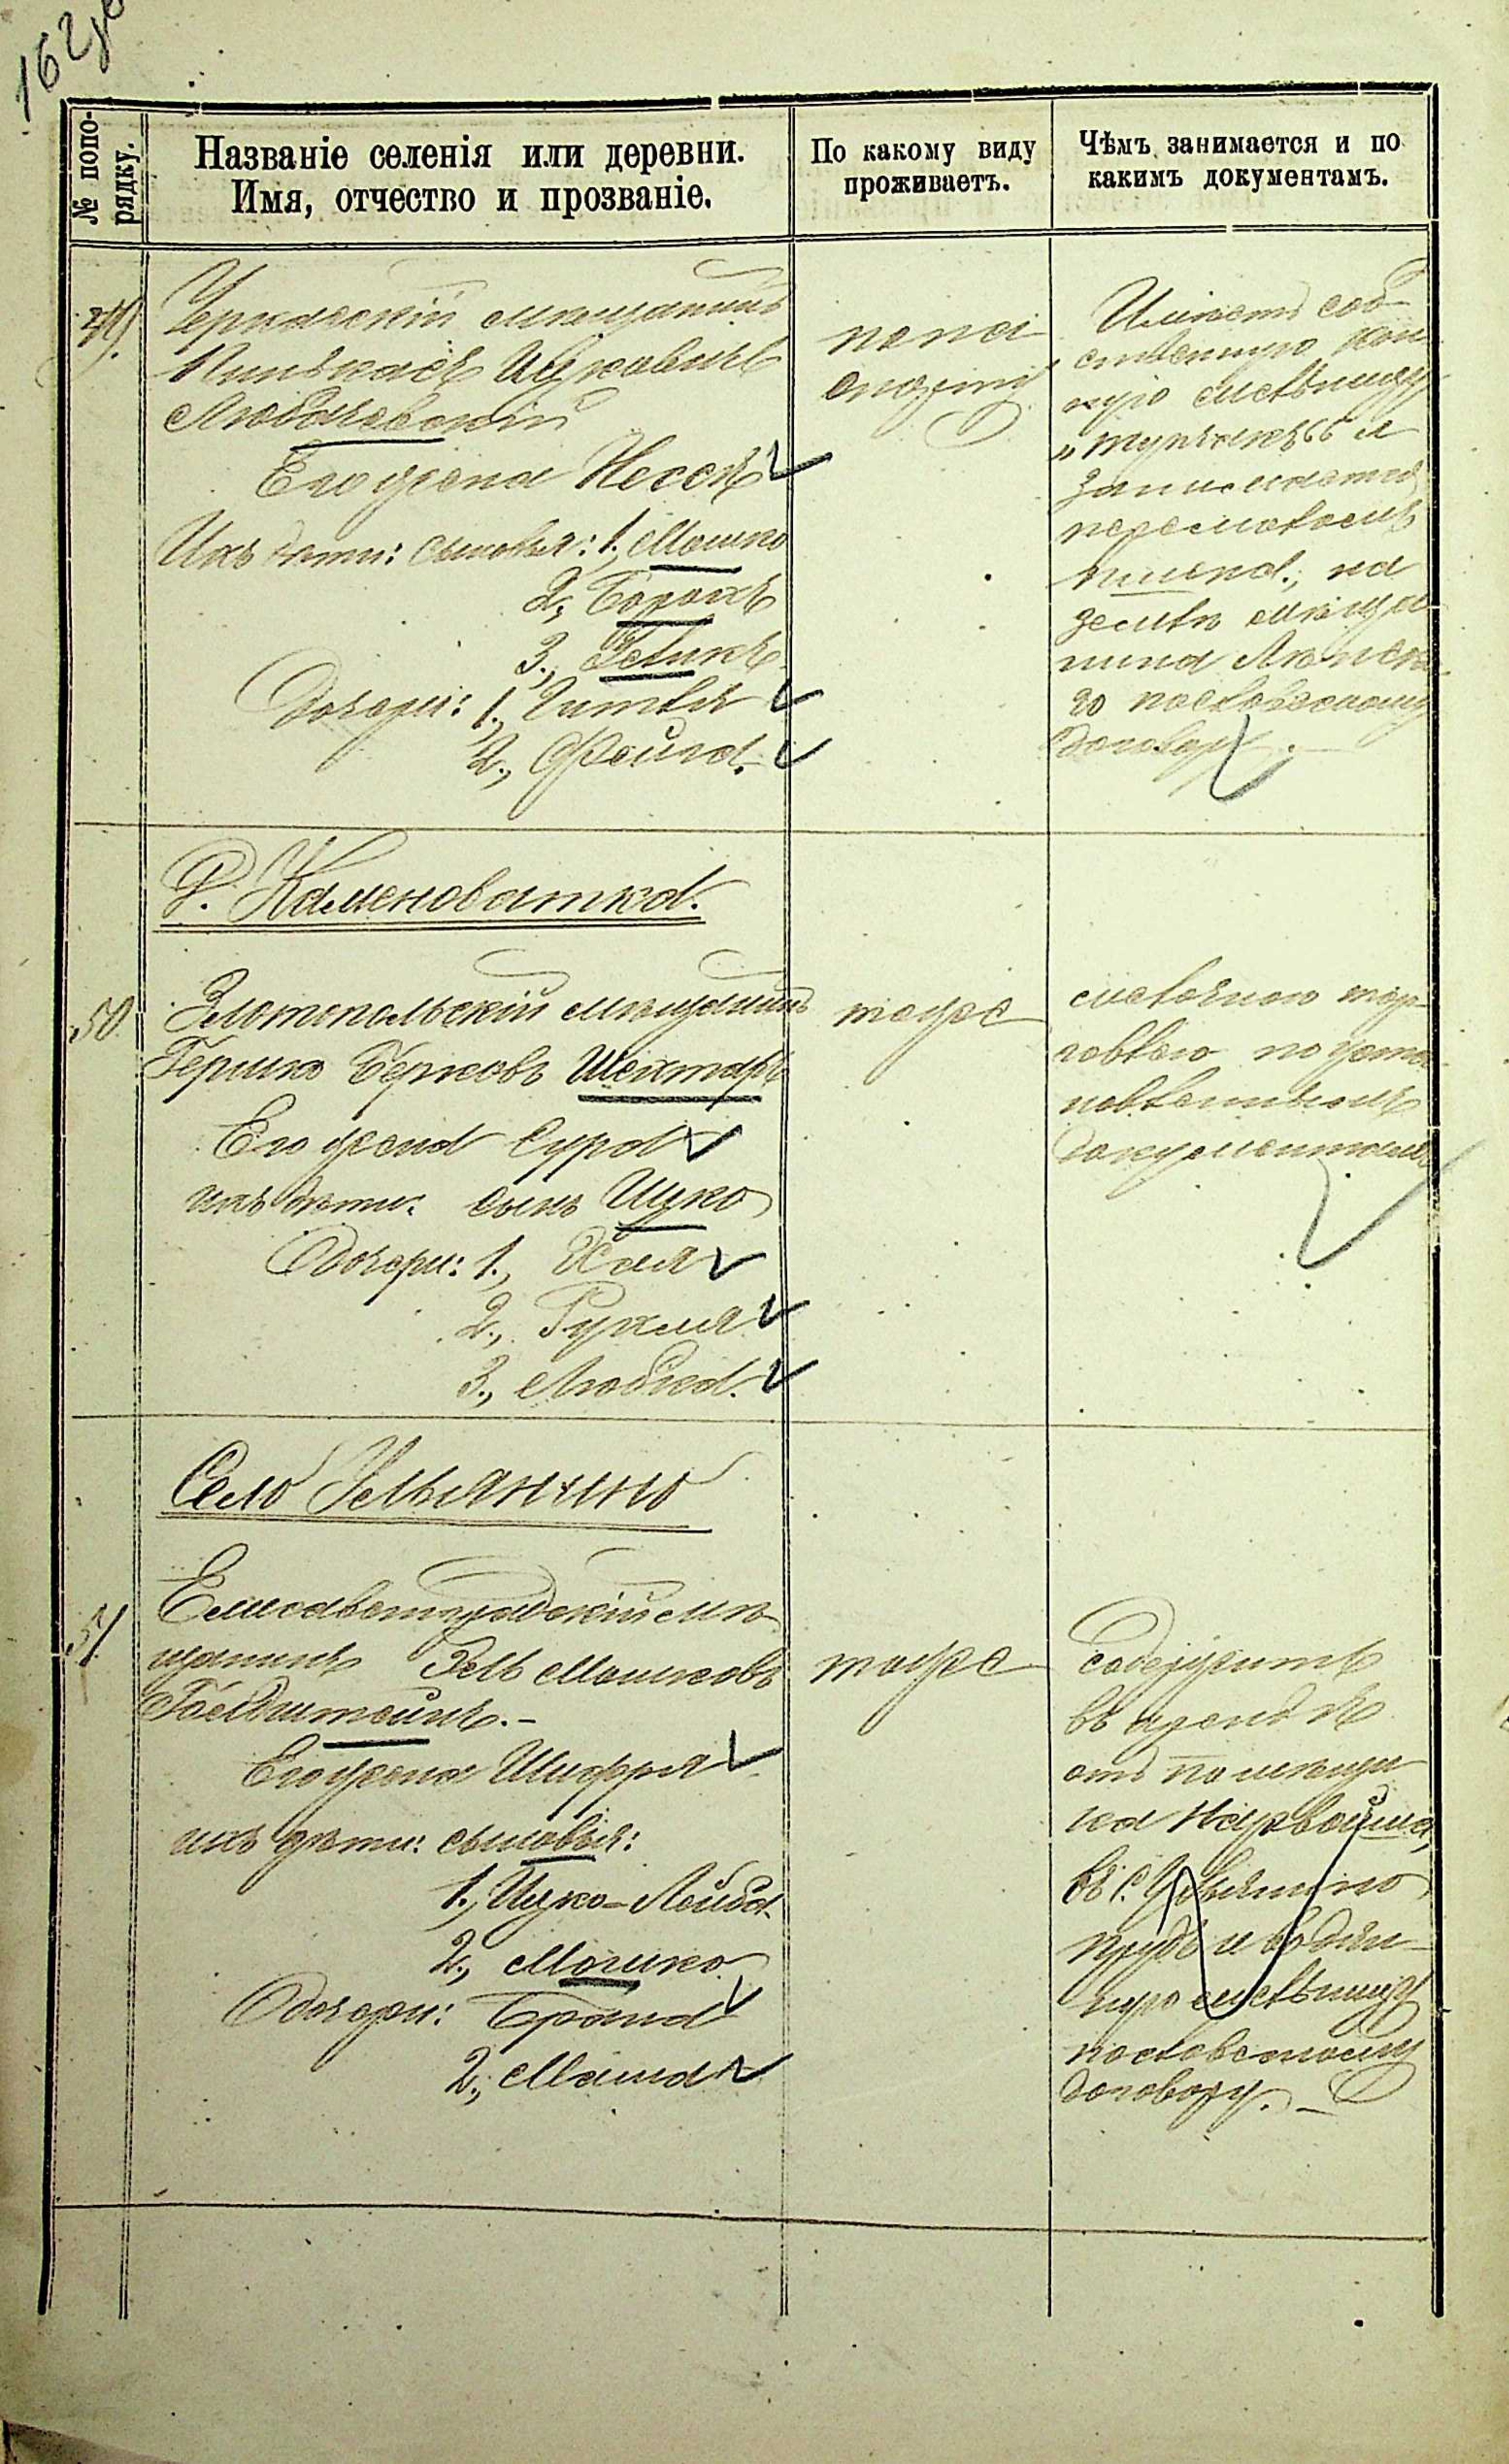 162
№ попо-
рядку.
Названіе селенія или деревни.
Имя, отчество и прозваніе.
По какому виду
проживаетъ.
Чѣмъ занимается и по
какимъ документамъ.
49
Черкаскій мѣщанинъ
Пинькасъ Ицковичъ
Любачевскій
Его жена Нессѣ
Ихъ дѣти: сыновья: 1., Мошко
2., Борохъ
3.,
Дочери: 1., Гитля
2., Фейга.
Имѣетъ соб-
ственную кон-
ную мельницу
„топчакъ“ и
занимается
перемоломъ
пшена., на
землѣ мѣща-
нина
го по словесному
договору.
Р. Каменоватка.
50
Златопольскій мѣщанинъ
Гершко Берковъ Шехтаръ
Его жена Сура
ихъ дѣти: сынъ Ицко
Дочери: 1., Хая
2., Рухля
3., Любка.
тоже
мелочною тор-
говлею по уста-
новленнымъ
документамъ
Село Ульянино
51
Елисаветградскій мѣ-
щанинъ Эль Мошковъ
Гольдштейнъ. -
Его жена Шифра
ихъ дѣти: сыновья:
1., Ицко-Лейба.
2., Мошко
Дочери: Броха
2., Маша
тоже
содержитъ
въ арендѣ
отъ помѣщи-
ка
въ с. Ульянино
прудъ и водян-
ную мельницу
по словесному
договору. -